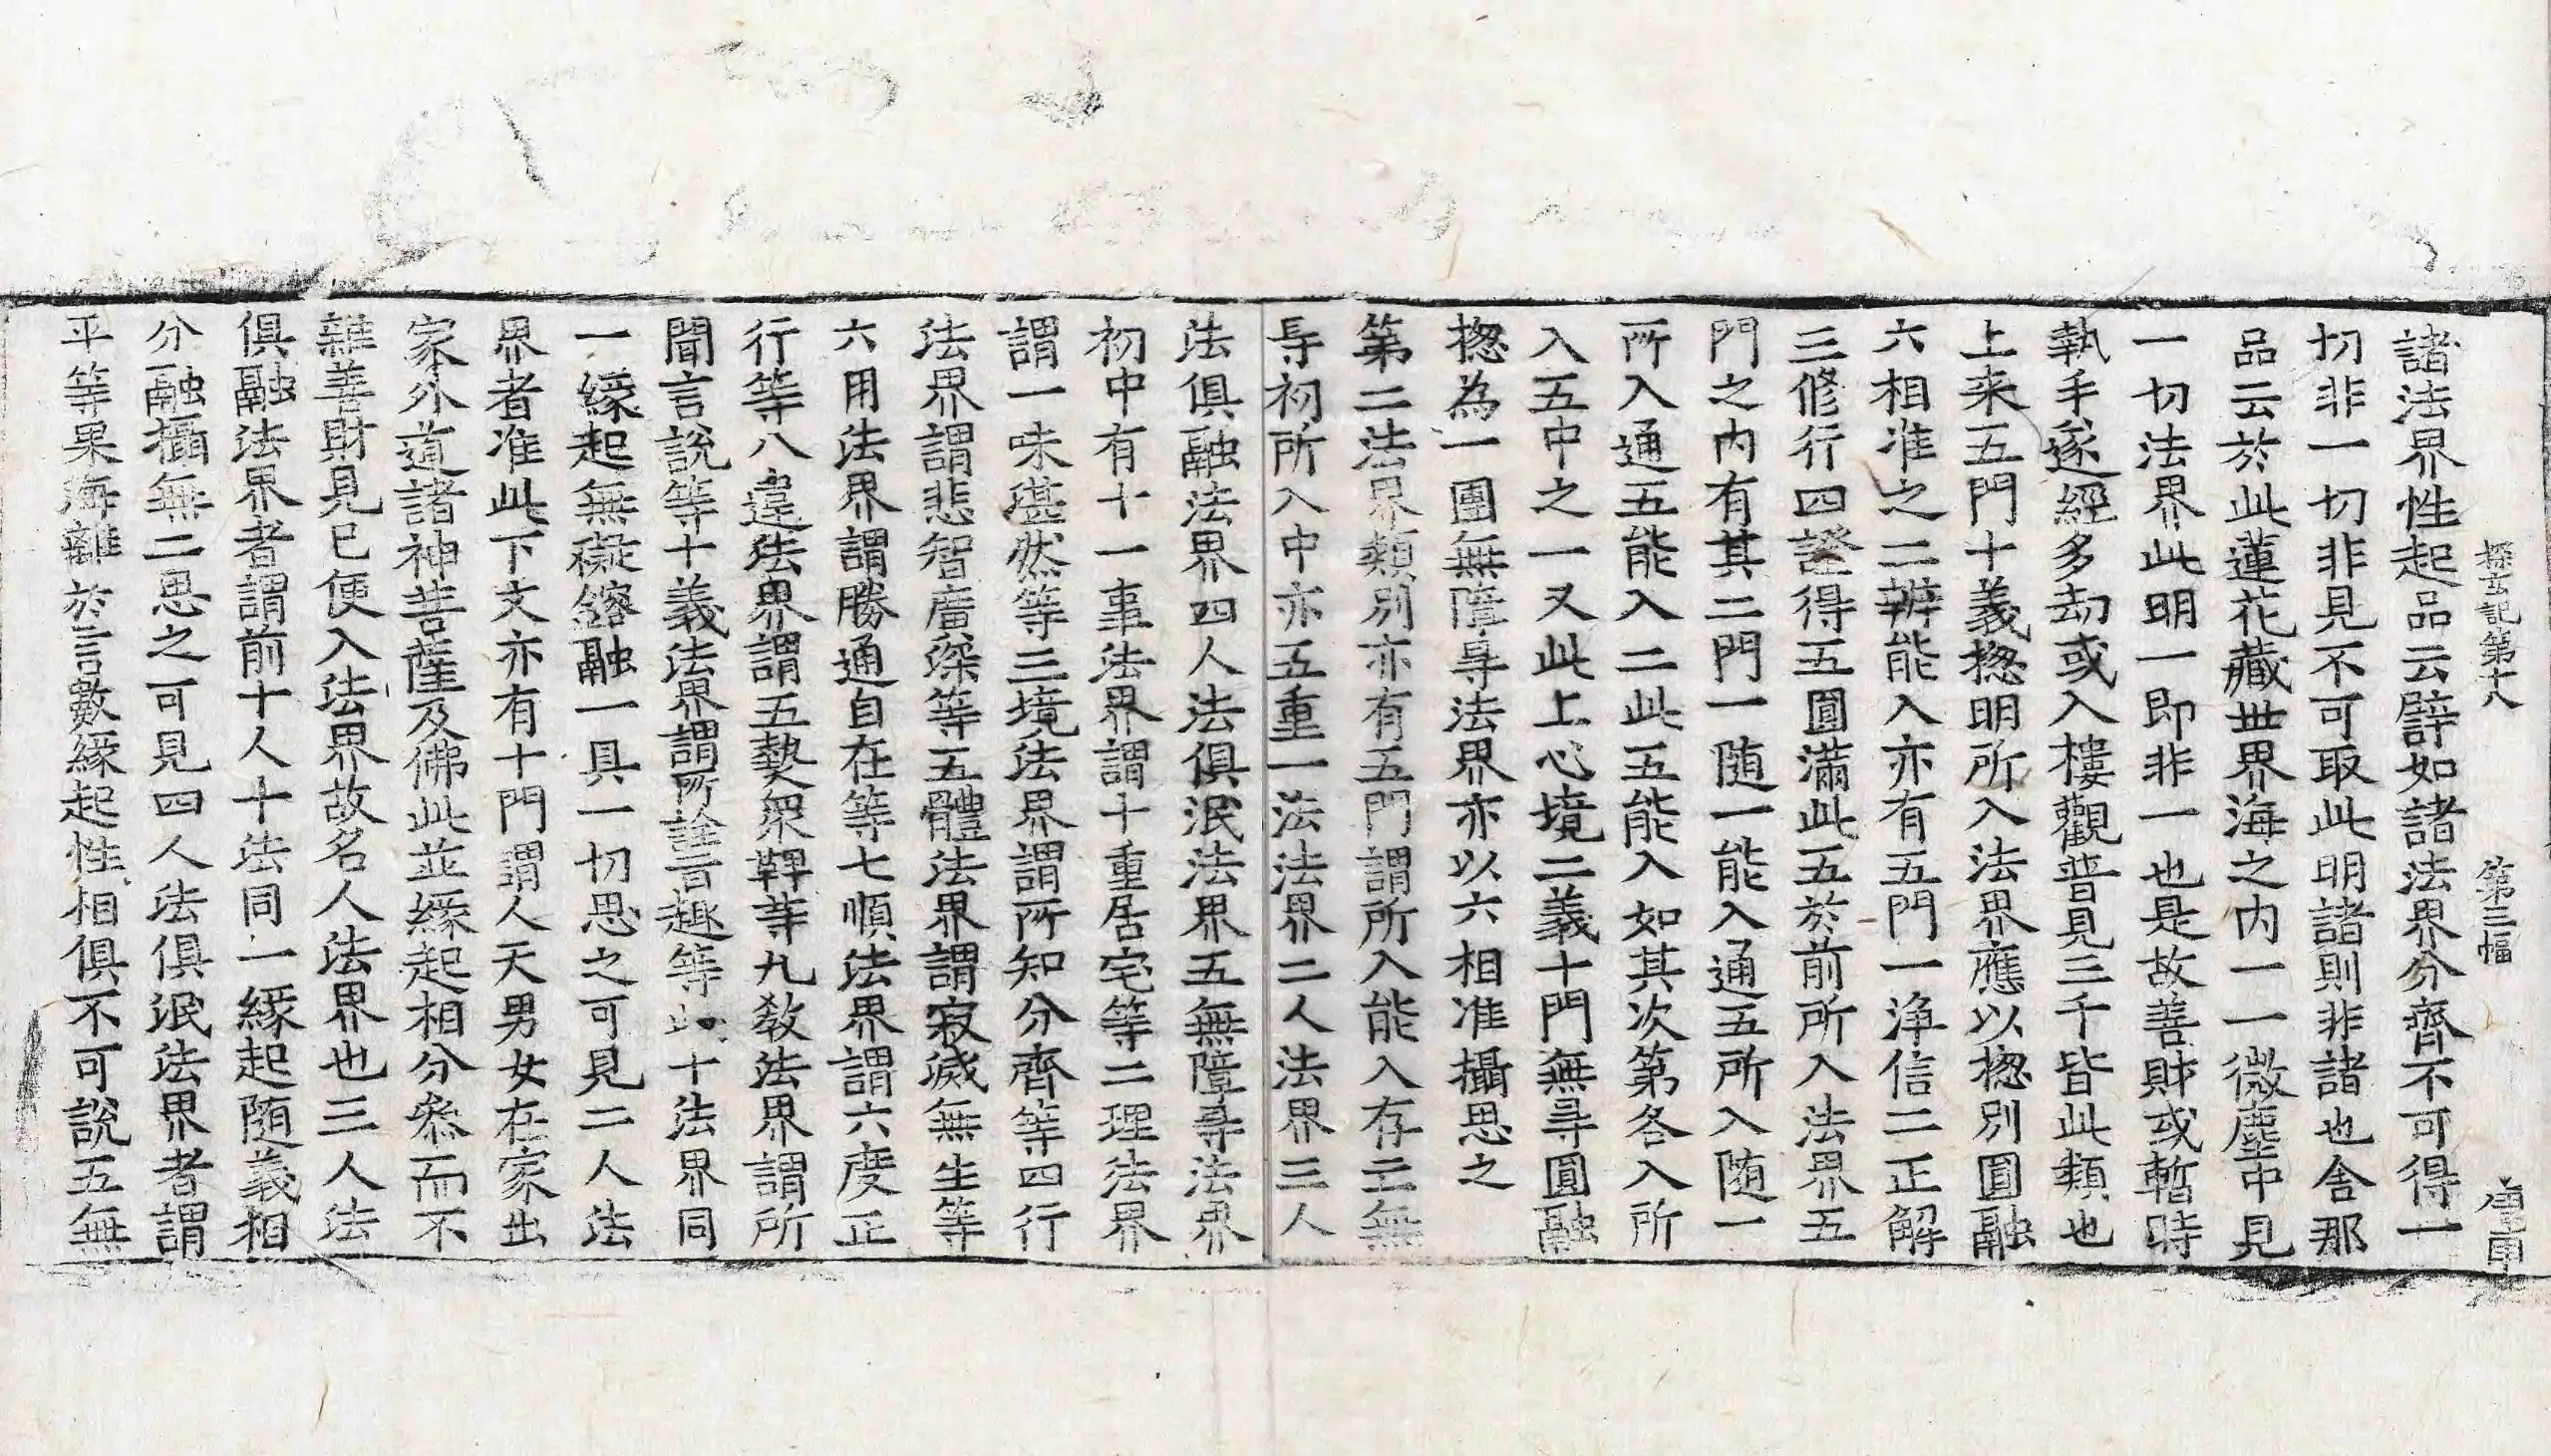 探玄記第十八　第三幅　庫甲
諸法界性起品云辟如諸法界分齊不可得一
切非一切非見不可取此明諸則非諸也舍那
品云於此蓮花藏世界海之内一一微塵中見
一切法界此明一即非一也是故善財或暫時
執手遂經多劫或入樓觀普見三千皆此類也
上来五門十義揔明所入法界應以揔別圓融
六相准之二辨能入亦有五門一淨信二正解
三修行四證得五圓滿此五於前所入法界五
門之内有其二門一随一能入通五所入随一
所入通五能入二此五能入如其次第各入所
入五中之一又此上心境二義十門無㝵圓融
揔為一團無障㝵法界亦以六相准攝思之
第二法界類別亦有五門謂所入能入存亡無
㝵初所入中亦五重一法法界二人法界三人
法俱融法界四人法俱泯法界五無障㝵法界
初中有十一事法界謂十重居宅等二理法界
謂一味湛然等三境法界謂所知分齊等四行
法界謂悲智廣深等五體法界謂寂滅無生等
六用法界謂勝通自在等七順法界謂六度正
行等八違法界謂五熱衆鞞等九教法界謂所
聞言說等十義法界謂所詮旨趣等此十法界同
一緣起無礙鎔融一具一切思之可見二人法
界者准此下文亦有十門謂人天男女在家出
家外道諸神菩薩及佛此並緣起相分參而不
雜善財見已便入法界故名人法界也三人法
俱融法界者謂前十人十法同一緣起随義相
分融攝無二思之可見四人法俱泯法界者謂
平等果海離於言數緣起性相俱不可說五無